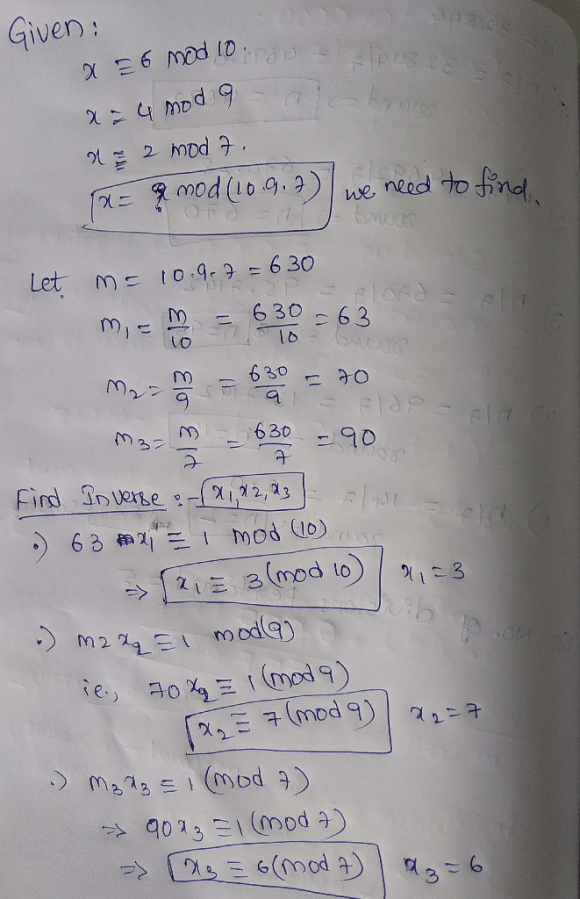 Given:
x ≡ 6 mod 10.
x = 4 mod 9
x ≡ 2 mod 7.
x = ? mod (10.9.7) we need to find.
Let m = 10.9.7 = 630
m₁ = m/10 = 630/10 = 63
m₂ = m/9 = 630/9 = 70
m₃ = m/7 = 630/7 = 90
Find Inverse :- x₁, x₂, x₃
.) 63 x₁ ≡ 1 mod (10)
⇒ x₁ ≡ 3 (mod 10) x₁ = 3
.) m₂ x₂ ≡ 1 mod (9)
ie., 70 x₂ ≡ 1 (mod 9)
x₂ ≡ 7 (mod 9) x₂ = 7
.) m₃ x₃ ≡ 1 (mod 7)
⇒ 90 x₃ ≡ 1 (mod 7)
⇒ x₃ ≡ 6 (mod 7) x₃ = 6